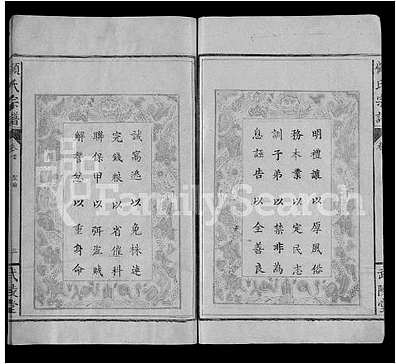 明禮讓以厚風俗
務本業以定民志
訓子弟以禁非為
息誣告以全善良
誡窩逃以免株連
完錢糧以省催科
聯保甲以弭盜賊
解讐忿以重身命
顧氏宗譜
武陵堂
FamilySearch